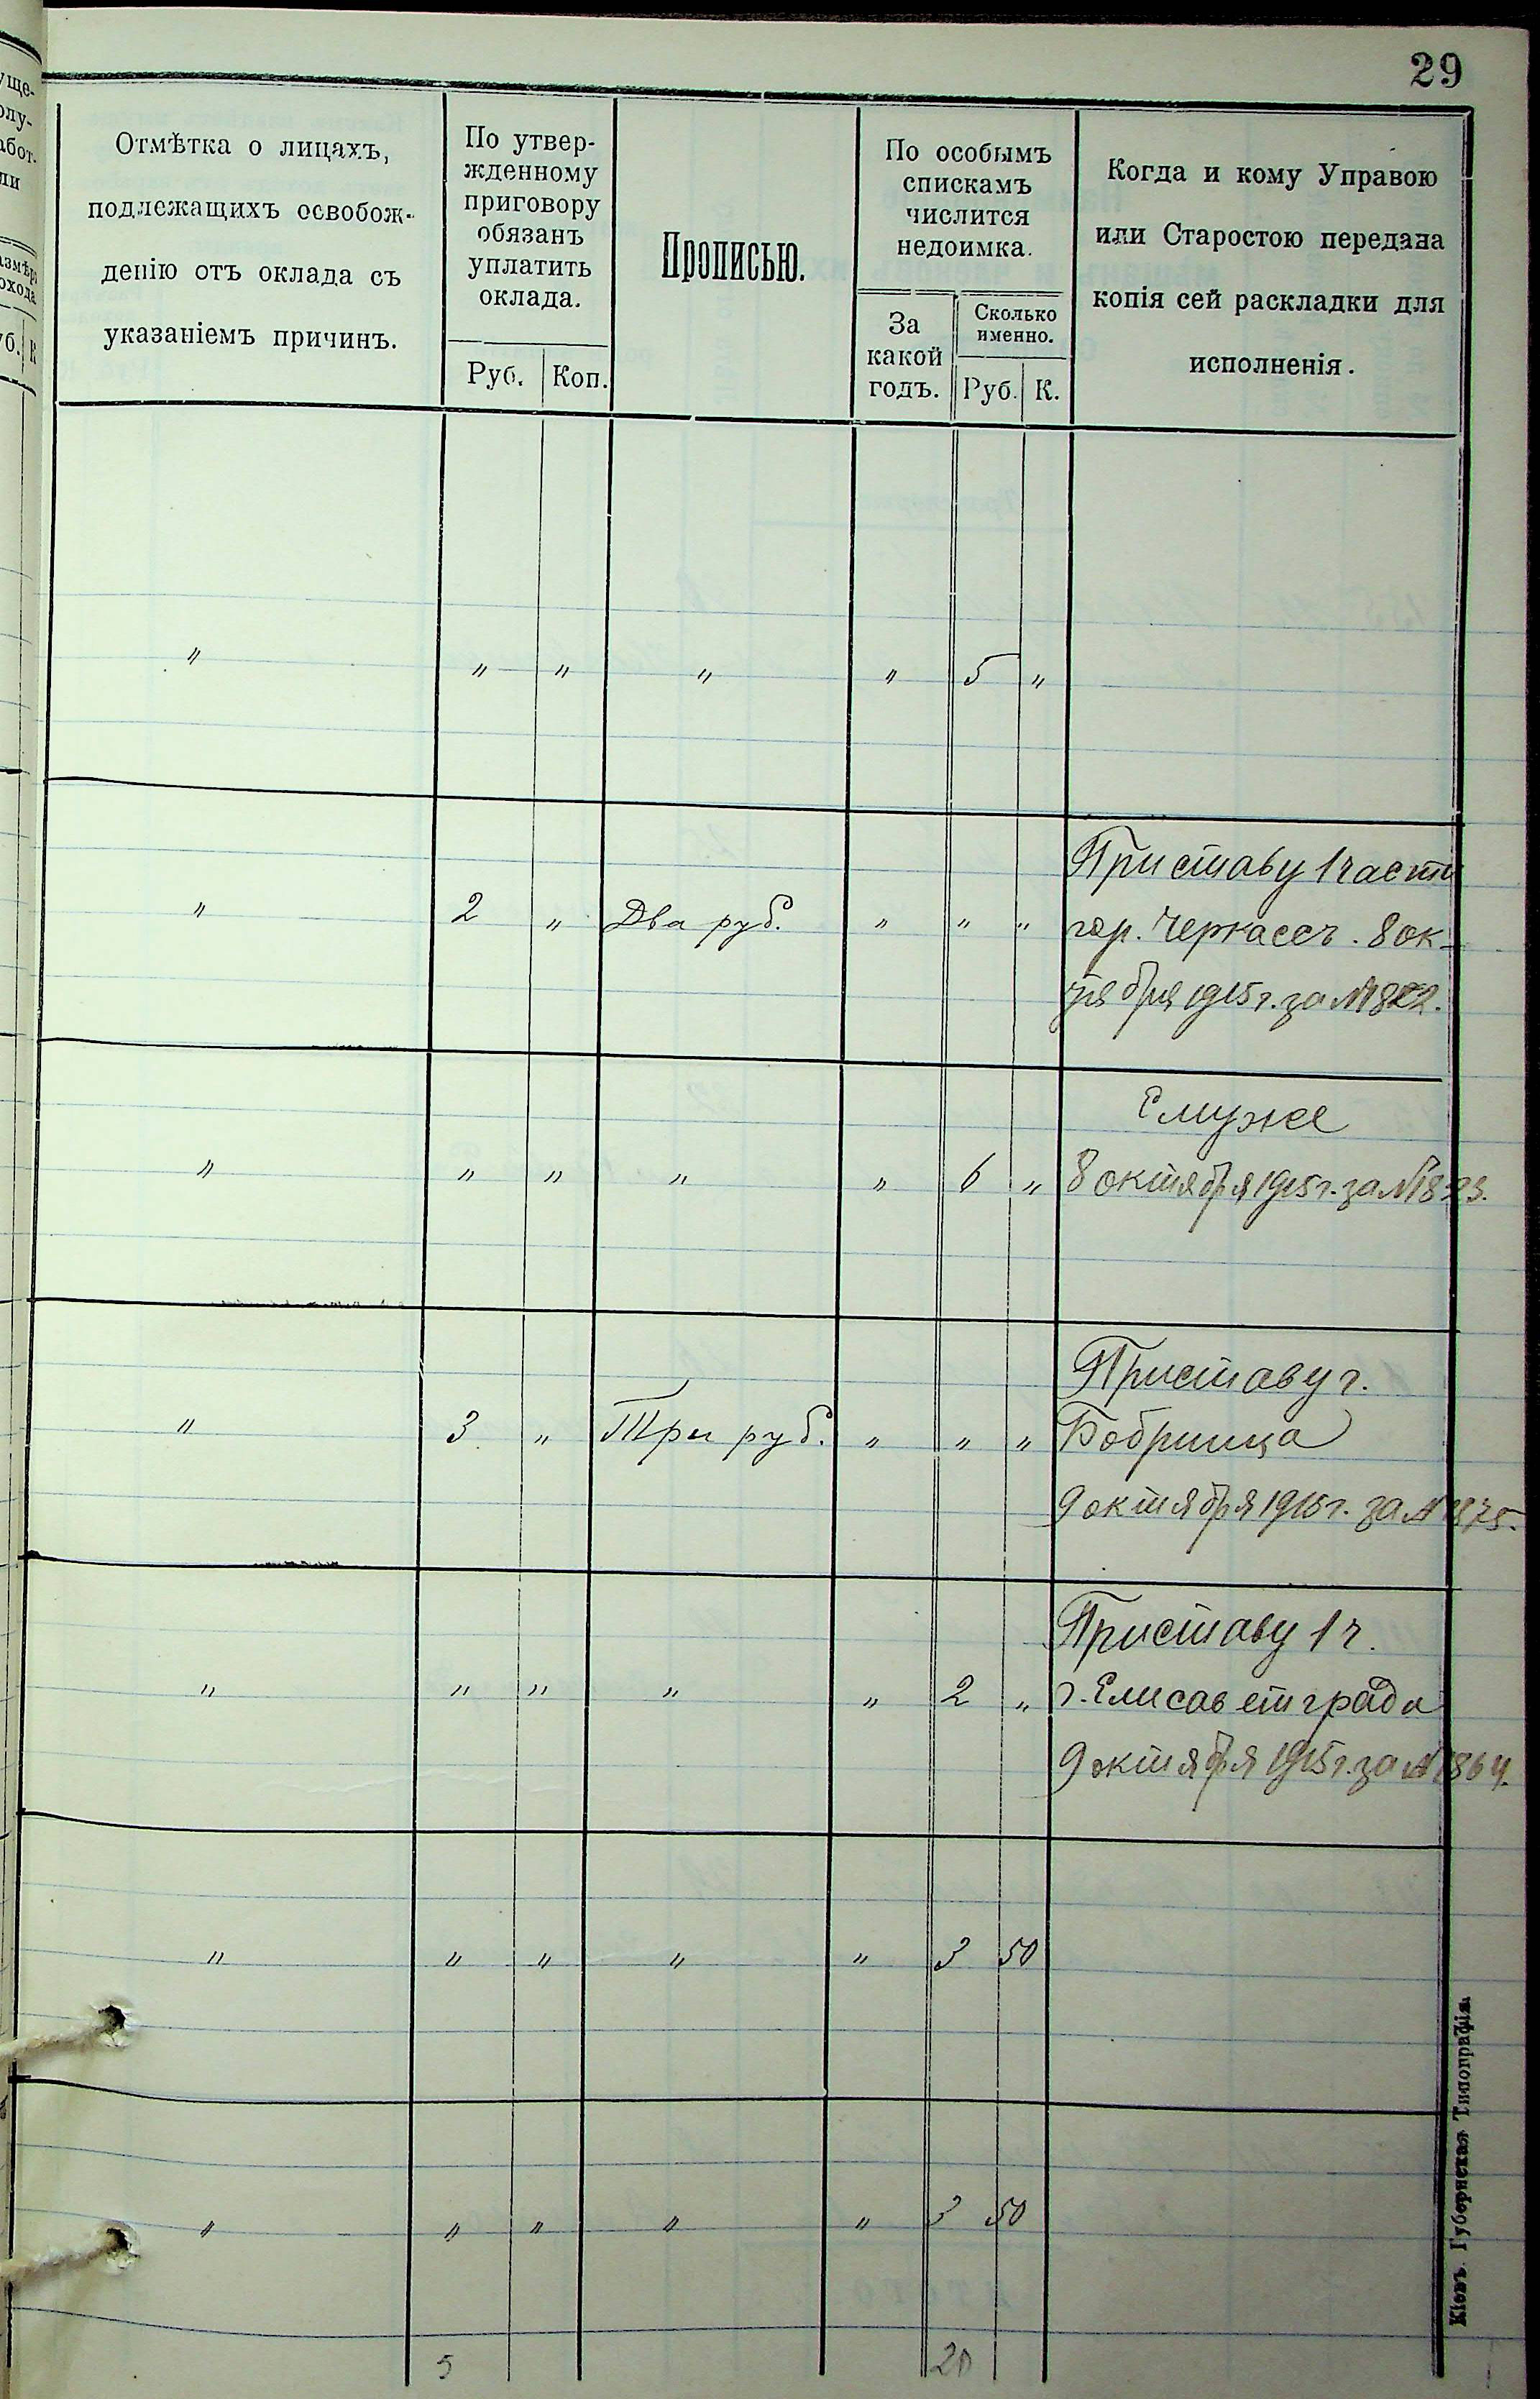 29
Отмѣтка о лицахъ,
подлежащихъ освобож-
денію отъ оклада съ
указаніемъ причинъ.
По утвер-
жденному
приговору
обязанъ
уплатить
оклада.
Руб. Коп.
Прописью.
По особымъ
спискамъ
числится
недоимка.
За
какой
годъ.
Сколько
именно.
Руб. К.
Когда и кому Управою
или Старостою передана
копія сей раскладки для
исполненія.
" " " " " 5 "
" 2 " Два руб. " " "
Приставу 1 части
гор. Черкассъ. 8 ок-
тября 1915 г. за №
" " " " " 6 "
Ему же
8 октября 1915 г. за № 823.
" 3 " Три руб. " " "
Приставу г.
Бобринца
9 октября 1915 г. за № 875.
" " " " " 2 "
Приставу 1 ч.
г. Елисаветграда
9 октября 1915 г. за № 864.
" " " " " 3 50
" " " " " 3 50
5 20
Кіевъ. Губернская Типографія.